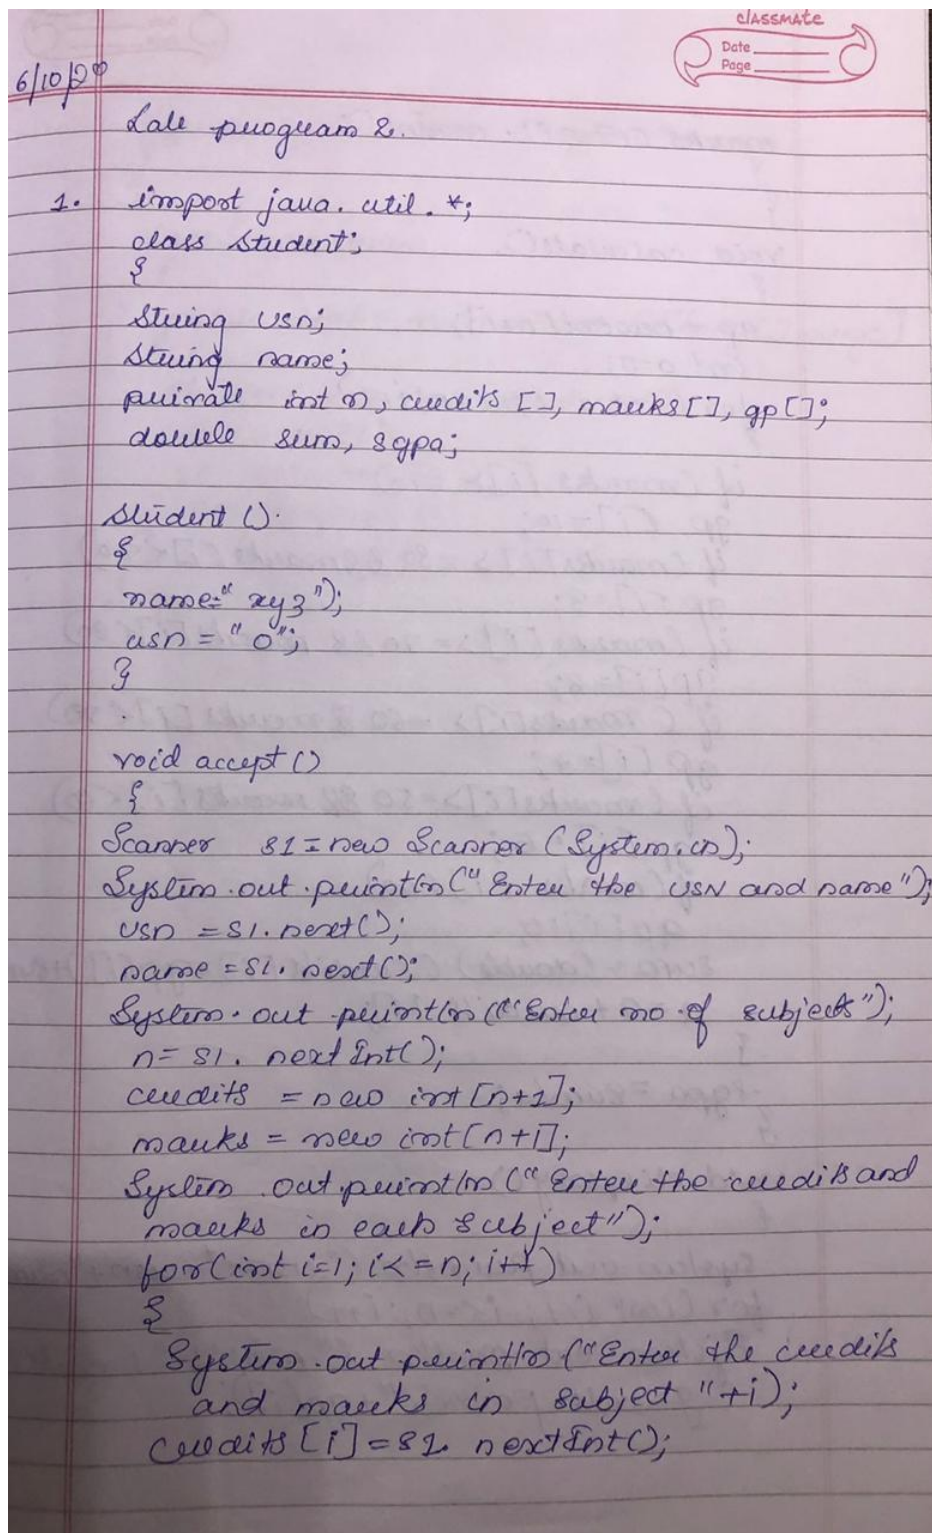 classmate
Date
Page
6/10/20
Lab program 2.
1. import java.util.*;
class Student;
{
String usn;
String name;
private int n, credits [], marks [], gp [];
double sum, sgpa;
Student ().
{
name=" xyz");
usn = "0";
}
void accept ()
{
Scanner s1 = new Scanner (System.in);
System.out.println (" Enter the USN and name");
usn = s1.next();
name = s1.next();
System.out.println (("Enter no of subjects");
n= s1. next Int();
credits = new int [n+1];
marks = new int [n+1];
System .out.println (" Enter the credits and
marks in each subject");
for(int i=1; i<=n; i++)
{
System.out.println ("Enter the credits
and marks in subject "+i);
credits [i] = s1. nextInt();